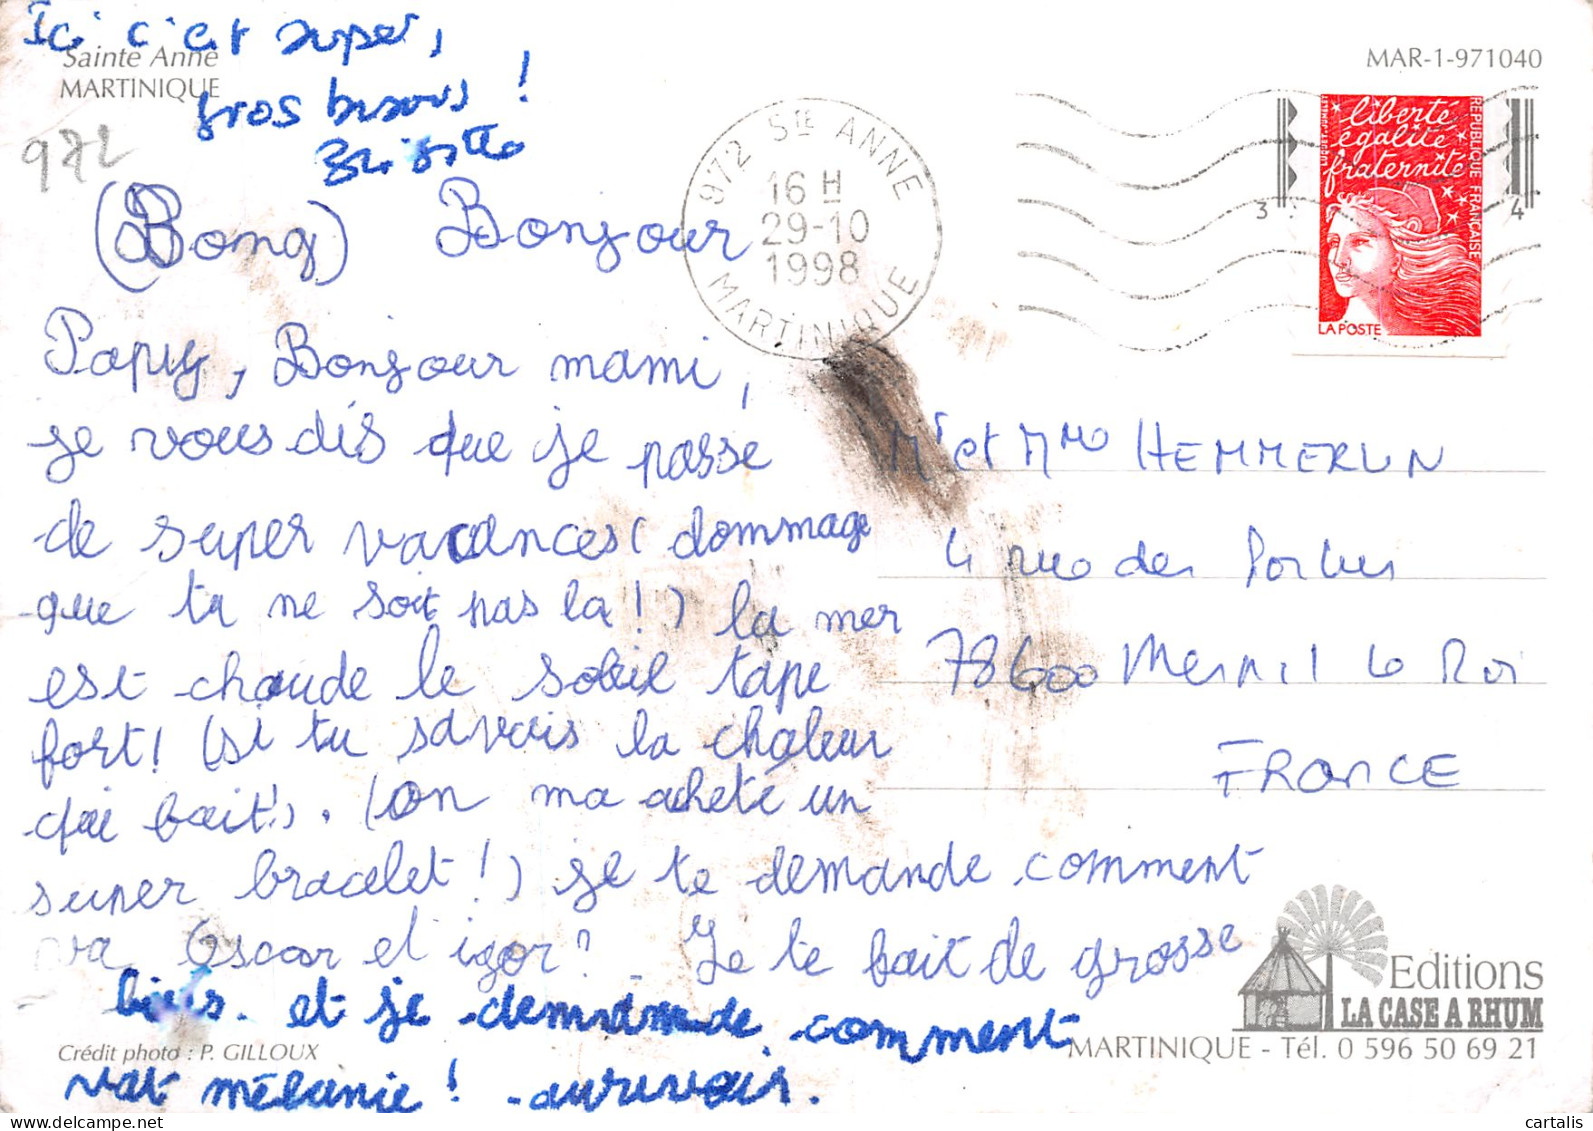 Ici c'et super,
Sainte Anne
MARTINIQUE
gros bisous !
Brigitte
972
MAR-1-971040
972 Ste ANNE
16 H
29-10
1998
MARTINIQUE
liberté
égalité
fraternité
RÉPUBLIQUE FRANÇAISE
LA POSTE
3
4
(Bong) Bonjour
Papy, Bonjour mami,
je vous dis que je passe
de super vacances( dommage
que tu ne soit pas la!) la mer
est chaude le soleil tape
fort! (si tu savais la chaleur
qui fait!). (on ma acheté un
super bracelet!) je te demande comment
va Oscar et igor? Je te fait de grosse
bius. et je demande comment
vat mélanie! aurevoir.
Mr et Mme HEMMERLIN
4 rue des
78600 Mesnil Le Roi
FRANCE
Crédit photo : P. GILLOUX
Editions
LA CASE A RHUM
MARTINIQUE - Tél. 0 596 50 69 21
cartalis